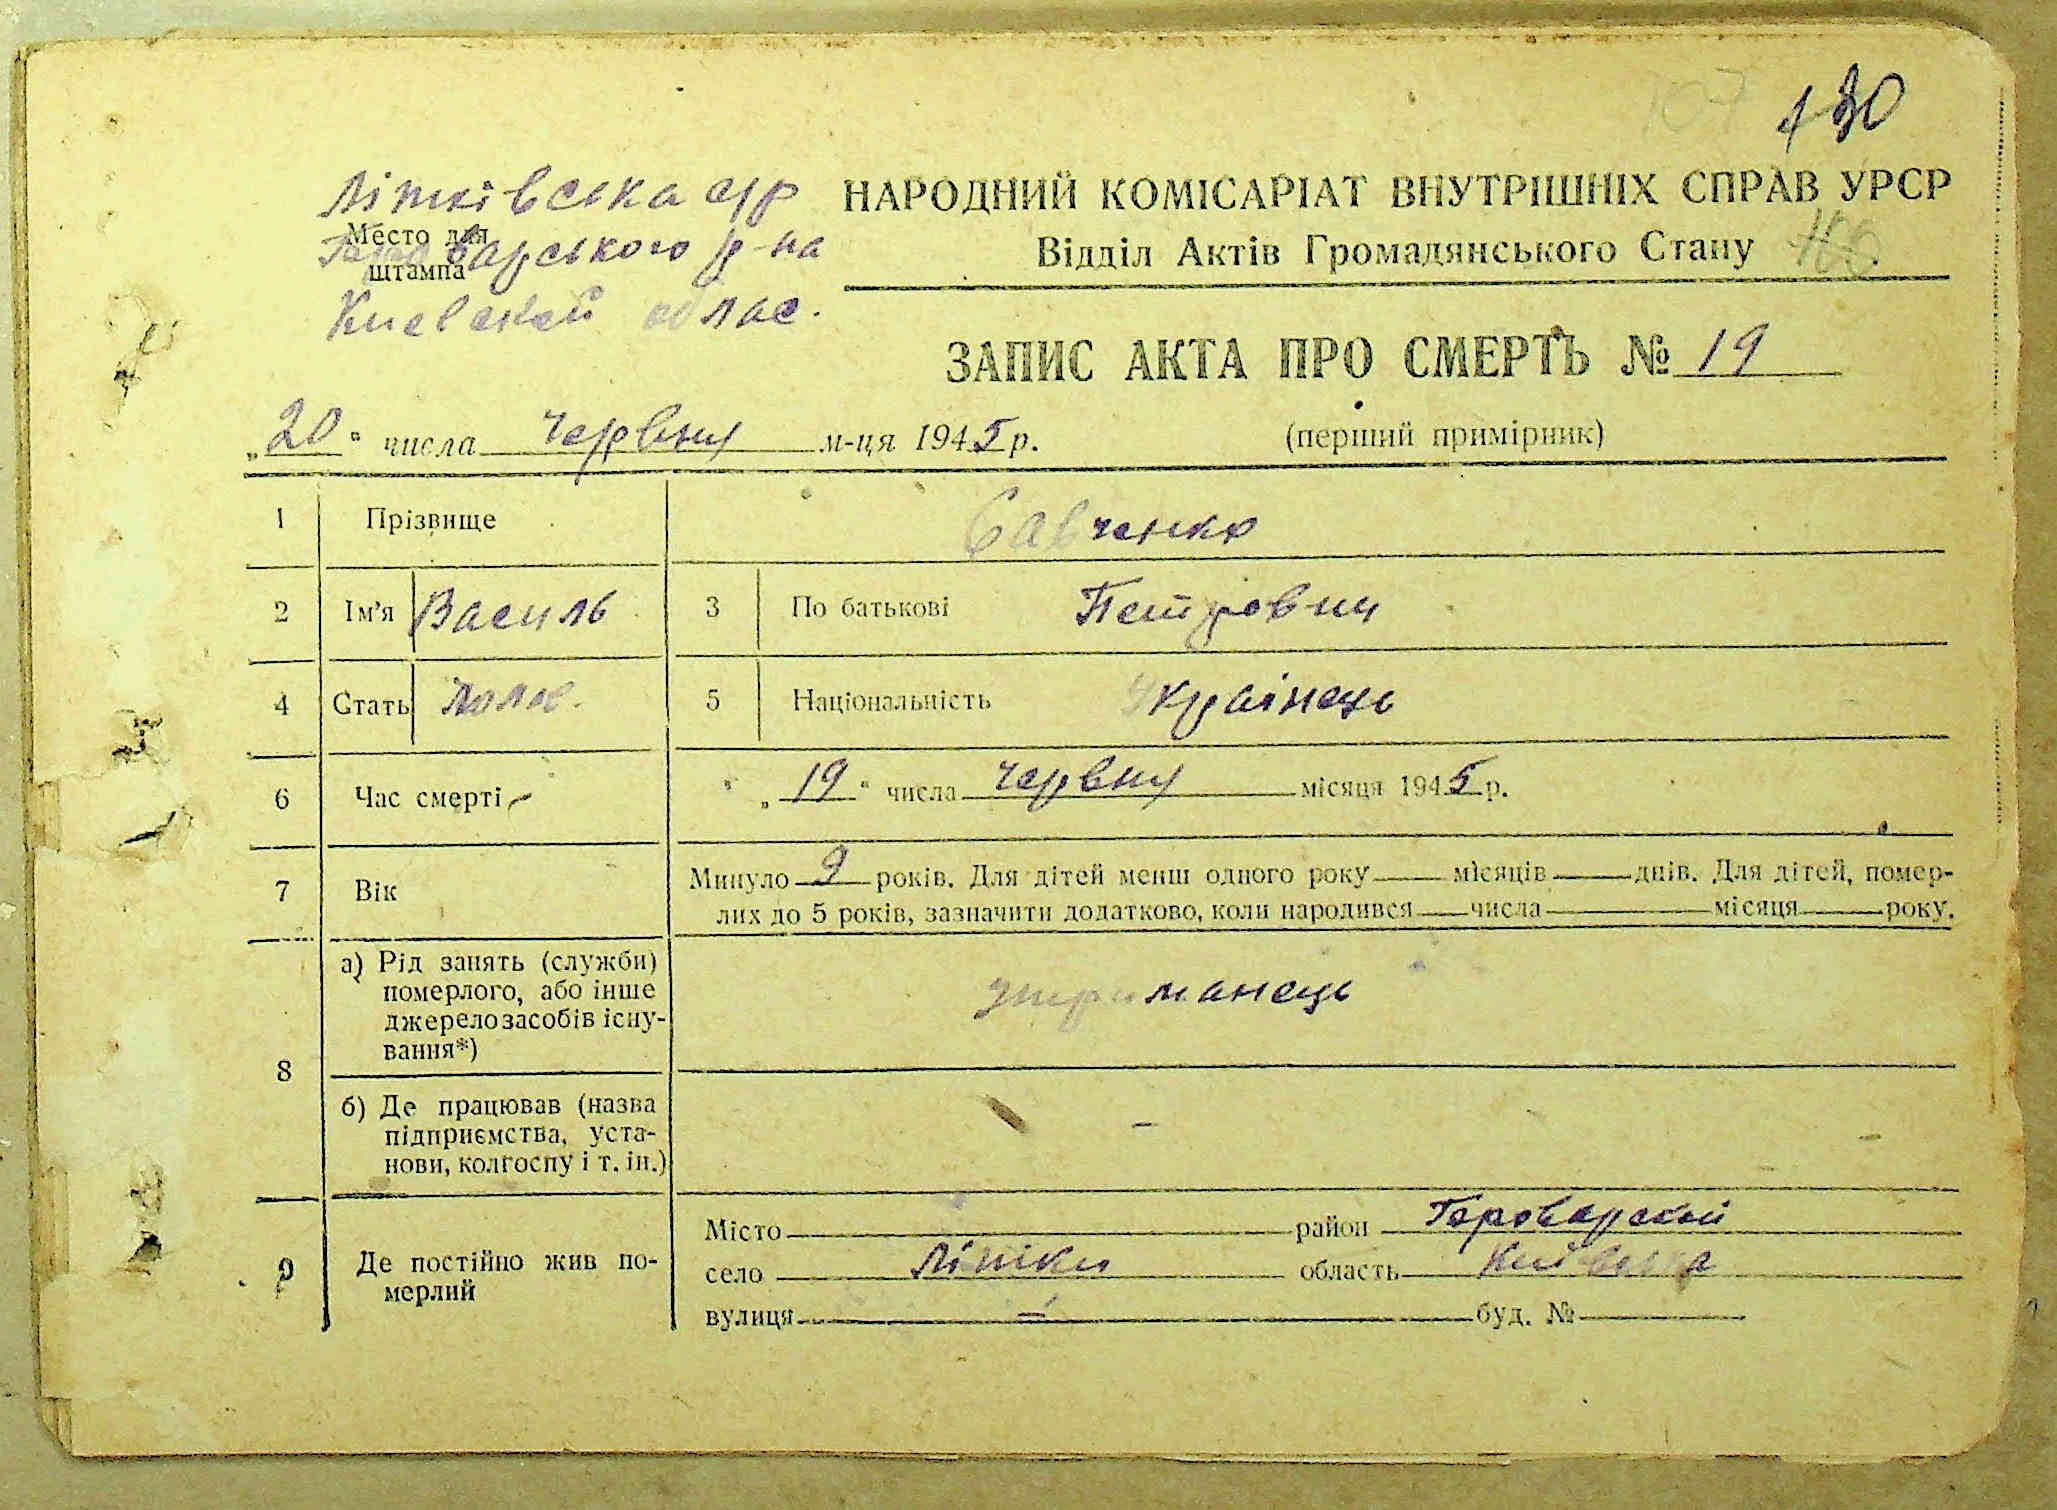 130
Літківська с/р
НАРОДНИЙ КОМІСАРІАТ ВНУТРІШНІХ СПРАВ УРСР
Место для
штампа
Броварського р-на
Відділ Актів Громадянського Стану
Киевской облас.
ЗАПИС АКТА ПРО СМЕРТЬ № 19
„20“ числа червня м-ця 1945 р.
(перший примірник)
1 Прізвище Савченко
2 Ім’я Василь 3 По батькові Петрович
4 Стать 5 Національність Українець
6 Час смерті „19“ числа червня місяця 1945 р.
7 Вік Минуло 9 років. Для дітей менш одного року місяців днів. Для дітей, помер-
лих до 5 років, зазначити додатково, коли народився числа місяця року.
8 а) Рід занять (служби)
померлого, або інше
джерело засобів існу-
вання*)
утриманець
б) Де працював (назва
підприємства, уста-
нови, колгоспу і т. ін.)
–
9 Де постійно жив по-
мерлий
Місто район Броварской
село Літки область Київська
вулиця – буд. №